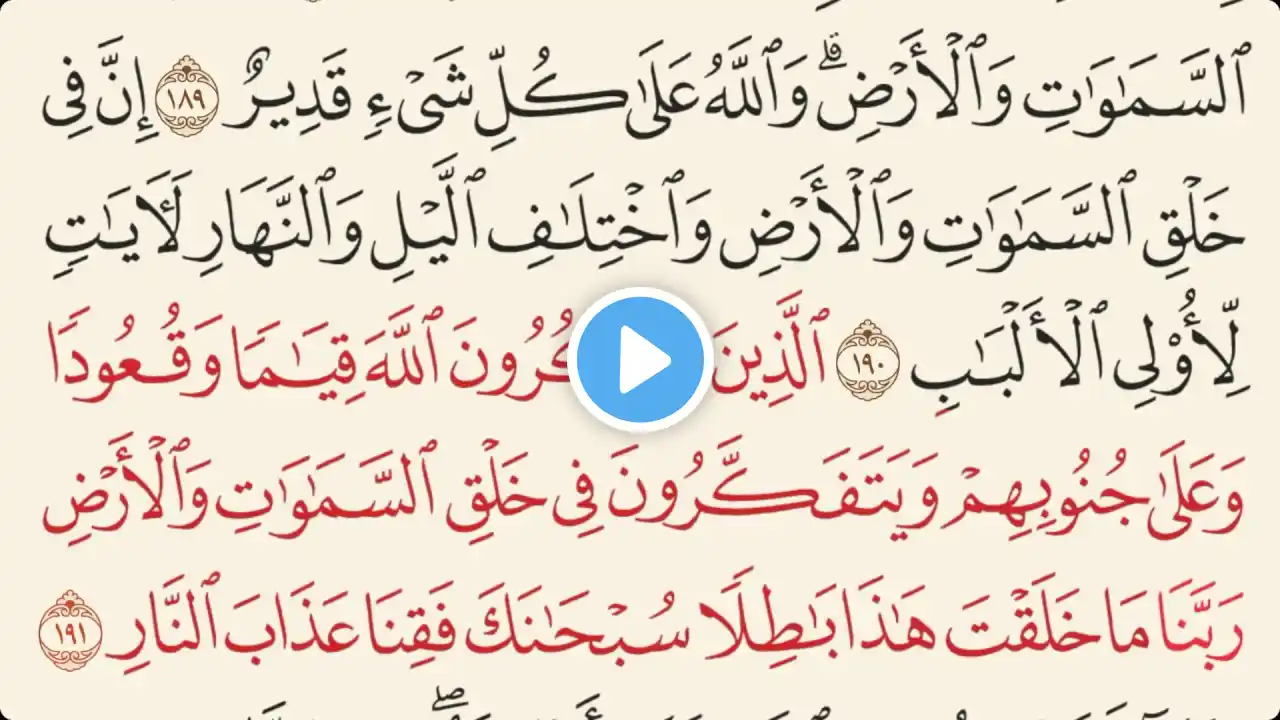 ٱلسَّمَـٰوَٰتِ وَٱلْأَرْضِ ۗ وَٱللَّهُ عَلَىٰ كُلِّ شَىْءٍ قَدِيرٌ ١٨٩ إِنَّ فِى
خَلْقِ ٱلسَّمَـٰوَٰتِ وَٱلْأَرْضِ وَٱخْتِلَـٰفِ ٱلَّيْلِ وَٱلنَّهَارِ لَـَٔايَـٰتٍ
لِّأُو۟لِى ٱلْأَلْبَـٰبِ ١٩٠ ٱلَّذِينَ كُرُونَ ٱللَّهَ قِيَـٰمًا وَقُعُودًا
وَعَلَىٰ جُنُوبِهِمْ وَيَتَفَكَّرُونَ فِى خَلْقِ ٱلسَّمَـٰوَٰتِ وَٱلْأَرْضِ
رَبَّنَا مَا خَلَقْتَ هَـٰذَا بَـٰطِلًا سُبْحَـٰنَكَ فَقِنَا عَذَابَ ٱلنَّارِ ١٩١